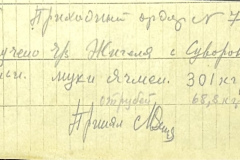 Приходный ордер N 7
учено чр. Жителя с Суворов
муки ячмен. 301 кг
отрубей 68,8 кг
Принял